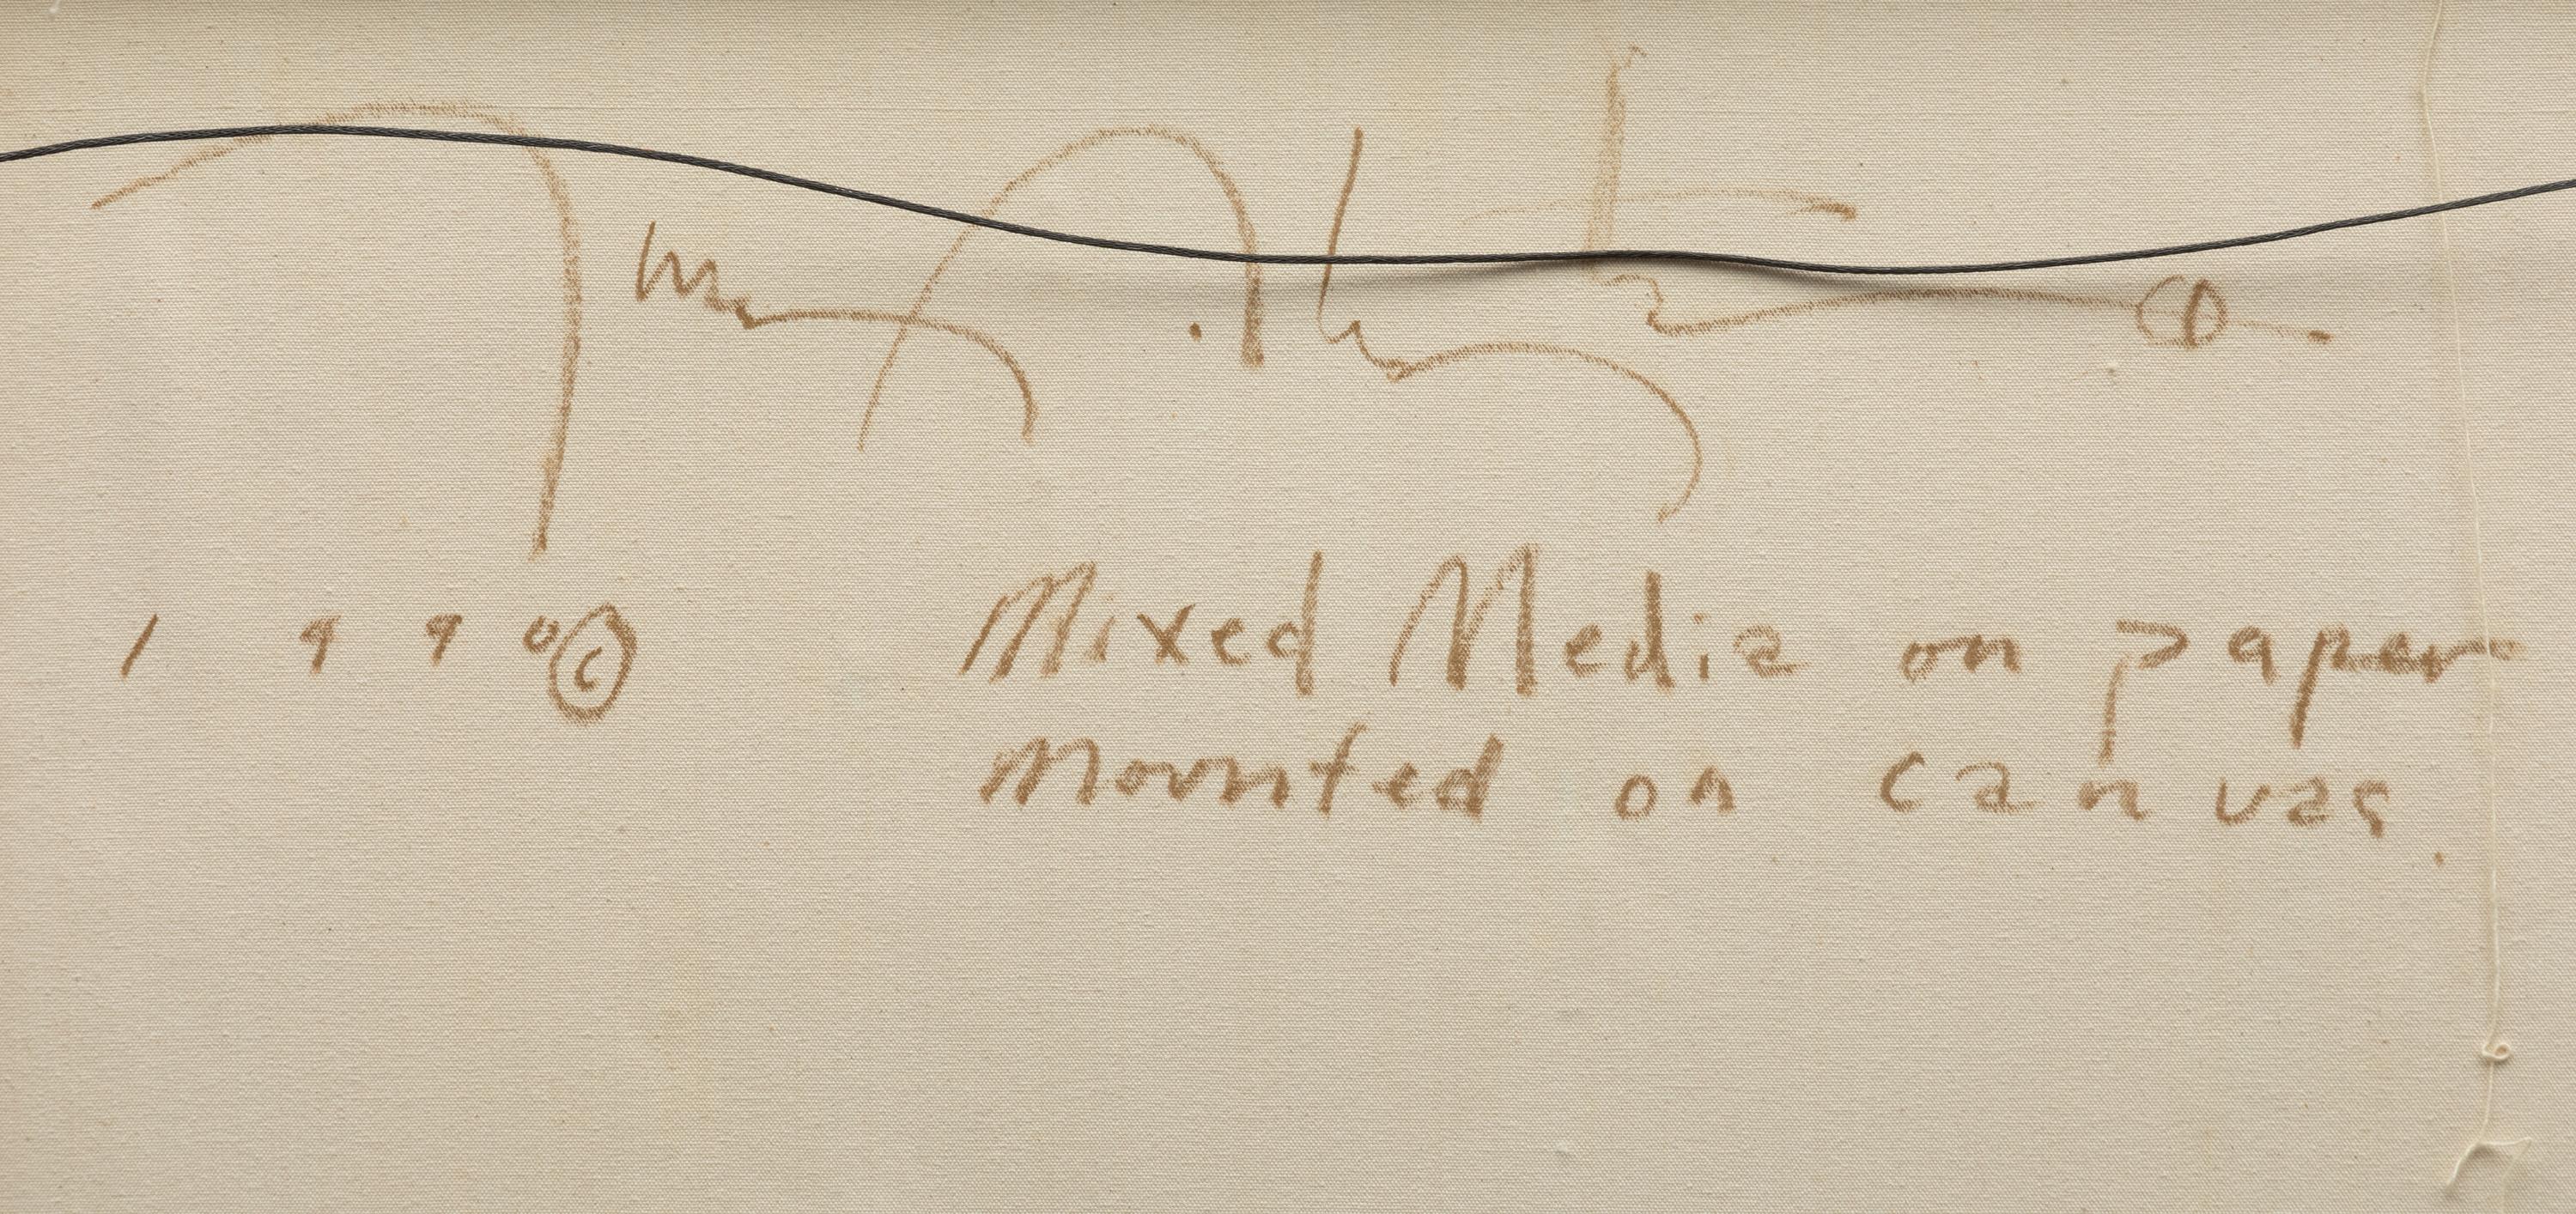 1990 ©
Mixed Media on paper
Mounted on canvas.